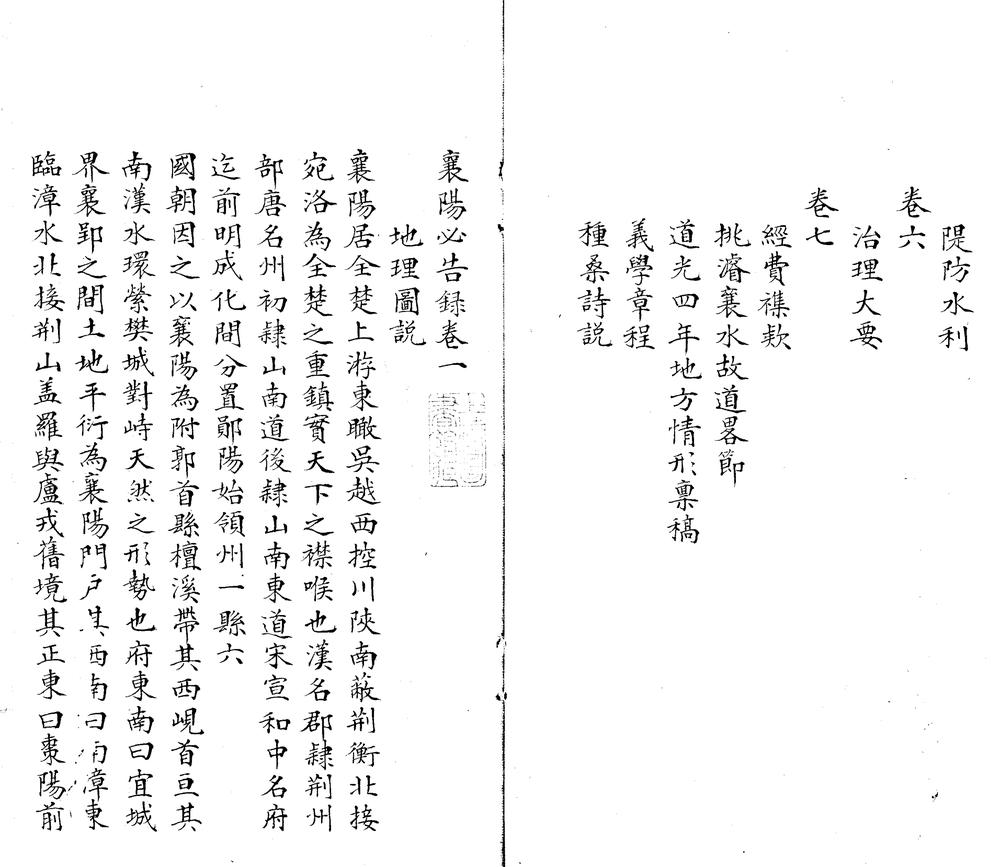 隄防水利
卷六
治理大要
卷七
經費襍欵
挑濬襄水故道畧節
道光四年地方情形稟稿
義學章程
種桑詩説
襄陽必告録卷一
地理圖説
襄陽居全楚上游東瞰吳越西控川陝南蔽荆衡北接
宛洛為全楚之重鎮實天下之襟喉也漢名郡隷荆州
部唐名州初隷山南道後隷山南東道宋宣和中名府
迄前明成化間分置鄖陽始領州一縣六
國朝因之以襄陽為附郭首縣檀溪帶其西峴首亘其
南漢水環縈樊城對峙天然之形勢也府東南曰宜城
界襄郢之間土地平衍為襄陽門戶其西南曰南漳東
臨漳水北接荆山盖羅與盧戎舊境其正東曰棗陽前